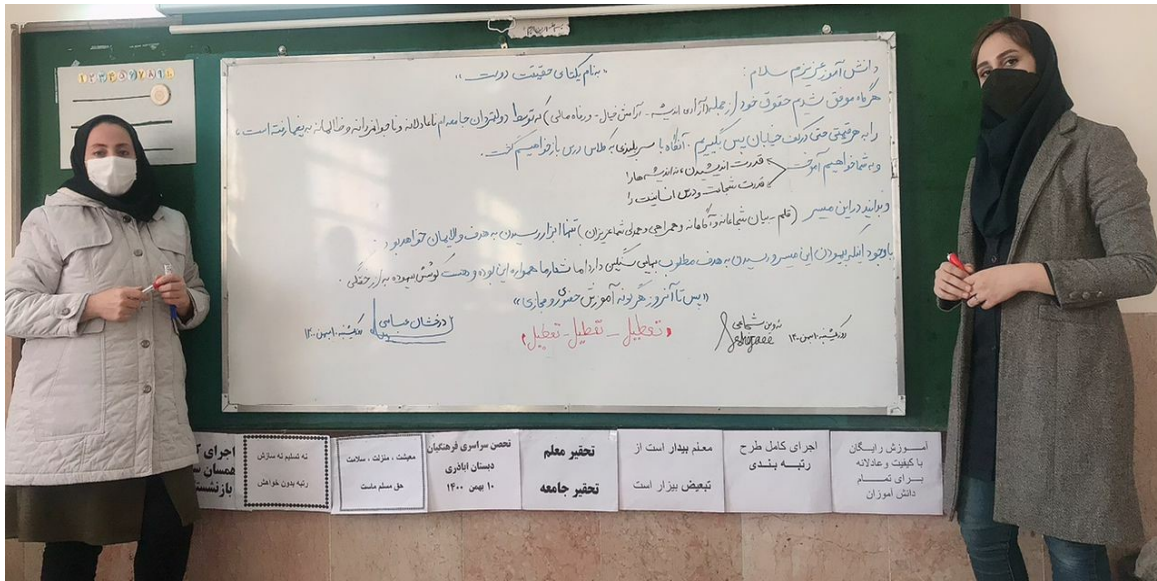 «به نام یکتای حقیقت دوست»
دانش آموز عزیزم سلام:
هرگاه موفق شدیم حقوق خود را از جمله (آزادی اندیشه - آرامش خیال - و رفاه مالی) که توسط دولتمردان جامعه ام ناعادلانه و ناجوانمردانه و ظالمانه به یغما رفته است،
را به هر قیمتی حتی در کف خیابان پس بگیریم. آنگاه با سربلندی به کلاس درس باز خواهیم گشت.
و به شما خواهیم آموخت
قدرت اندیشیدن، نه اندیشه ها را
قدرت شجاعت و درس انسانیت را
و بدانید در این مسیر (قلم - بیان شجاعانه و آگاهانه و همراهی و همدلی شما عزیزان) تنها ابزار رسیدن به هدف والایمان خواهد بود.
با وجود اینکه پیمودن این مسیر و رسیدن به هدف مطلوب بهایی سنگین دارد اما شعار ما همواره این بوده و هست کوشش بیهوده به از خفتگی.
«پس تا آنروز هرگونه آموزش حضوری و مجازی»
«تعطیل - تعطیل - تعطیل»
شجاعی
Shojaee
۱۰ بهمن ۱۴۰۰
درخشان عباسی
۱۰ بهمن ۱۴۰۰
آموزش رایگان
با کیفیت و عادلانه
برای تمام
دانش آموزان
اجرای کامل طرح
رتبه بندی
معلم بیدار است از
تبعیض بیزار است
تحقیر معلم
تحقیر جامعه
تحصن سراسری فرهنگیان
دبستان اباذری
۱۰ بهمن ۱۴۰۰
معیشت ، منزلت ، سلامت
حق مسلم ماست
نه تسلیم نه سازش
رتبه بدون خواهش
اجرای
همسان
بازنشست